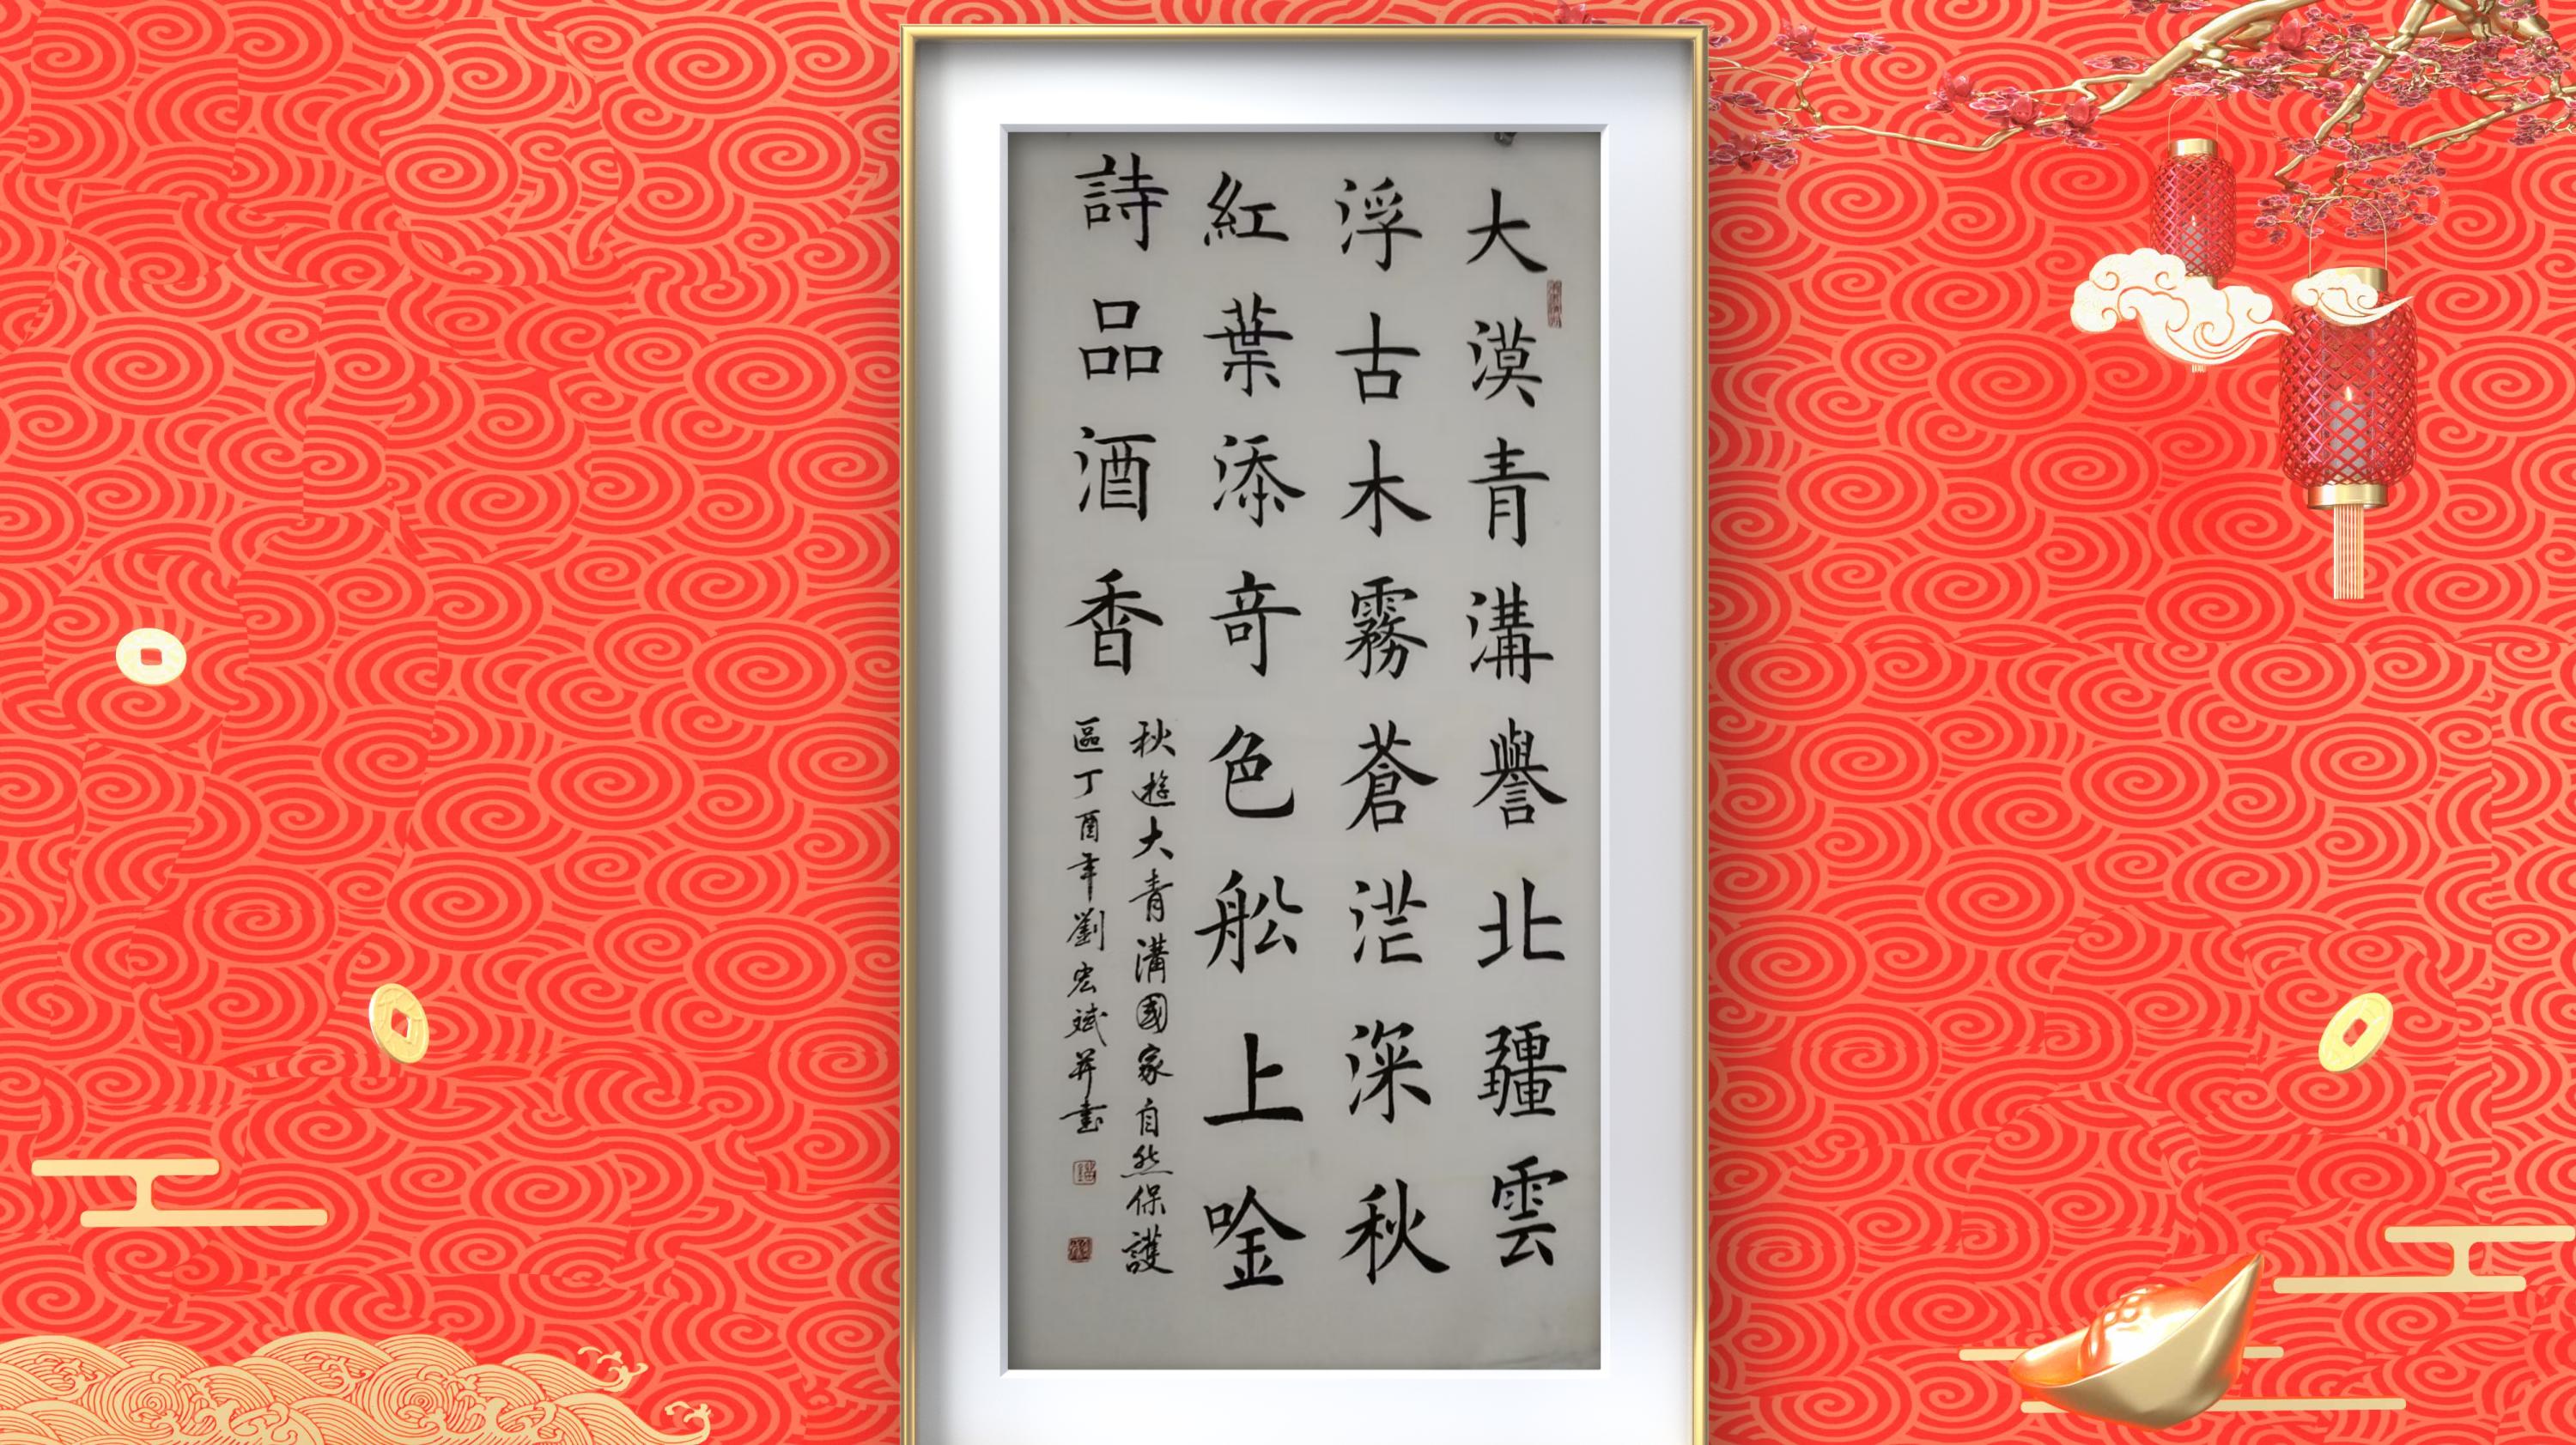 大漠青溝譽北疆雲
浮古木霧蒼茫深秋
紅葉添奇色舩上唫
詩品酒香
秋遊大青溝國家自然保護
區丁酉年劉宏斌并書